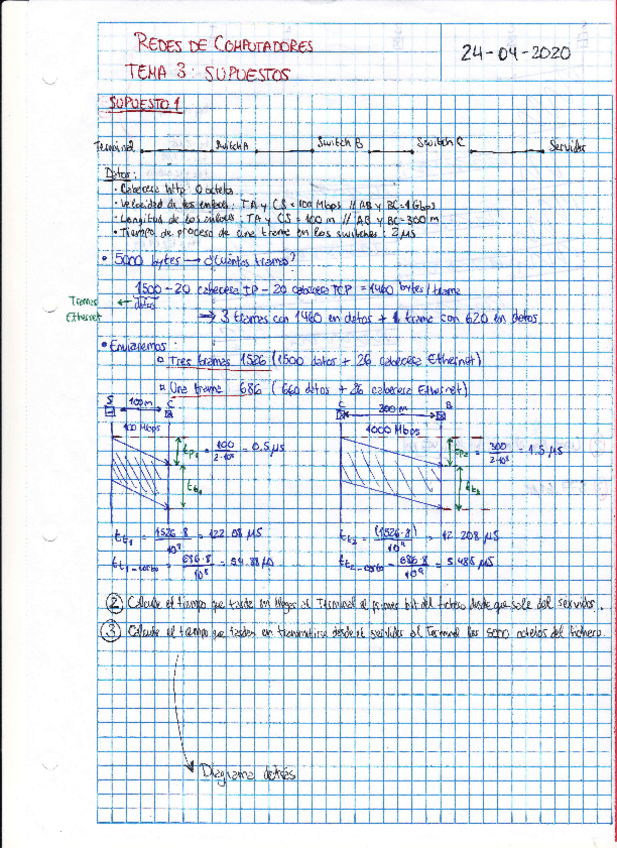 REDES DE COMPUTADORES
24-04-2020
TEMA 3: SUPUESTOS
SUPUESTO 1
Terminal Switch A Switch B Switch C Servidor
Datos:
· Cabecera http 0 octetos
· Velocidad de los enlaces: TA y CS = 100 Mbps // AB y BC = 1 Gbps
· Longitud de los enlaces: TA y CS = 100 m // AB y BC = 300 m
· Tiempo de proceso de una trama en los switches: 2 µs
• 5000 bytes → ¿Cuántas tramas?
1500 - 20 cabecera IP - 20 cabecera TCP = 1460 bytes/trama
Tramas Ethernet ← datos
⇒ 3 tramas con 1460 en datos + 1 trama con 620 en datos
• Enviaremos:
▫ Tres tramas 1526 (1500 datos + 26 cabecera Ethernet)
▫ Una trama 686 (660 datos + 26 cabecera Ethernet)
S 100m C
100 Mbps
tp₁ = 100/2·10⁸ = 0.5 µs
tt₁
C 300 m B
1000 Mbps
tp₂ = 300/2·10⁸ = 1.5 µs
tt₂
tt₁ = 1526·8/10⁸ = 122.08 µs
tt₁-corto = 686·8/10⁸ = 54.88 µs
tt₂ = (1526·8)/10⁹ = 12.208 µs
tt₂-corto = 686·8/10⁹ = 5.488 µs
② Calcule el tiempo que tarda en llegar al Terminal el primer bit del fichero desde que sale del servidor.
③ Calcule el tiempo que tardan en transmitirse desde el servidor al Terminal los 5000 octetos del fichero.
Diagrama detrás